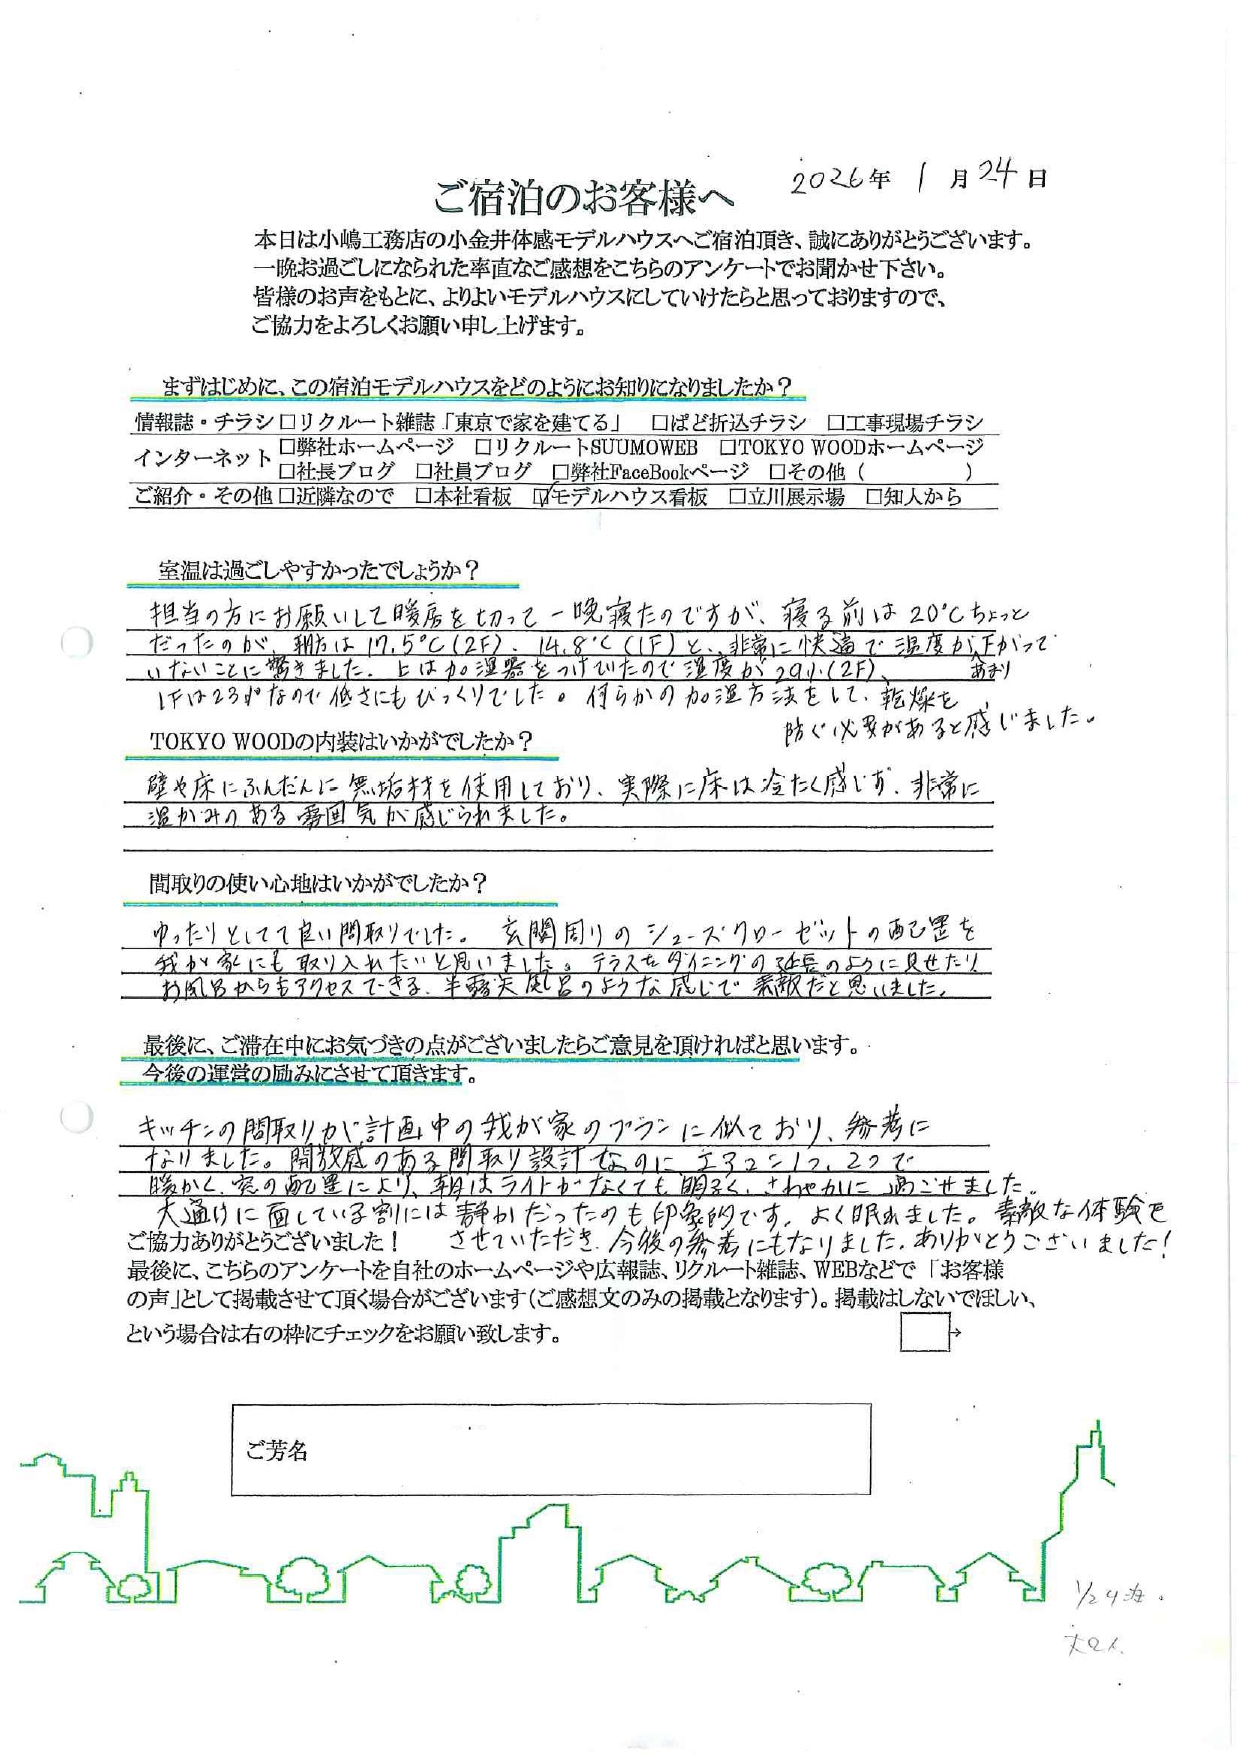 2026年 1月24日
ご宿泊のお客様へ
本日は小嶋工務店の小金井体感モデルハウスへご宿泊頂き、誠にありがとうございます。
一晩お過ごしになられた率直なご感想をこちらのアンケートでお聞かせ下さい。
皆様のお声をもとに、よりよいモデルハウスにしていけたらと思っておりますので、
ご協力をよろしくお願い申し上げます。
まずはじめに、この宿泊モデルハウスをどのようにお知りになりましたか？
情報誌・チラシ □リクルート雑誌「東京で家を建てる」 □ぱど折込チラシ □工事現場チラシ
インターネット □弊社ホームページ □リクルートSUUMOWEB □TOKYO WOODホームページ
□社長ブログ □社員ブログ □弊社FaceBookページ □その他（ ）
ご紹介・その他 □近隣なので □本社看板 ☑モデルハウス看板 □立川展示場 □知人から
室温は過ごしやすかったでしょうか？
担当の方にお願いして暖房を切って一晩寝たのですが、寝る前は20℃ちょっと
だったのが、朝方は17.5℃(2F)、14.8℃(1F)と、非常に快適で温度が下がって
いないことに驚きました。上は加湿器をつけていたので湿度が29%(2F)、あまり
1Fは23%なので低さにもびっくりでした。何らかの加湿方法をして、乾燥を
防ぐ必要があると感じました。
TOKYO WOODの内装はいかがでしたか？
壁や床にふんだんに無垢材を使用しており、実際に床は冷たく感じず、非常に
温かみのある雰囲気が感じられました。
間取りの使い心地はいかがでしたか？
ゆったりとしてて良い間取りでした。玄関周りのシューズクローゼットの配置を
我が家にも取り入れたいと思いました。テラスをダイニングの延長のように見せたり
お風呂からもアクセスできる、半露天風呂のような感じで素敵だと思いました。
最後に、ご滞在中にお気づきの点がございましたらご意見を頂ければと思います。
今後の運営の励みにさせて頂きます。
キッチンの間取りが計画中の我が家のプランに似ており、参考に
なりました。開放感のある間取り設計なのにエアコン1つ、2つで
暖かく、窓の配置により、朝はライトがなくても明るく、さわやかに過ごせました。
大通りに面している割には静かだったのも印象的です。よく眠れました。素敵な体験を
させていただき、今後の参考にもなりました。ありがとうございました！
ご協力ありがとうございました！
最後に、こちらのアンケートを自社のホームページや広報誌、リクルート雑誌、WEBなどで「お客様
の声」として掲載させて頂く場合がございます（ご感想文のみの掲載となります）。掲載はしないでほしい、
という場合は右の枠にチェックをお願い致します。
ご芳名
1/24